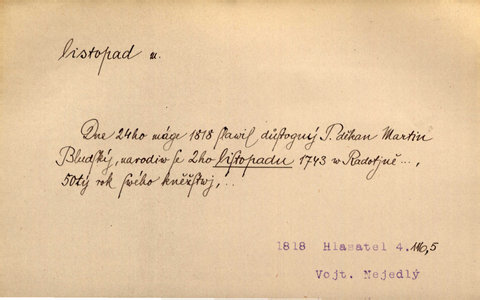 listopad u.
Dne 24ho máge 1818 slawil důstogný P. děkan Martin
Bludský, narodiw se 2ho listopadu 1743 w Radotjně...,
50tý rok swého kněžstwj,...
1818 Hlasatel 4. 116,5
Vojt. Nejedlý